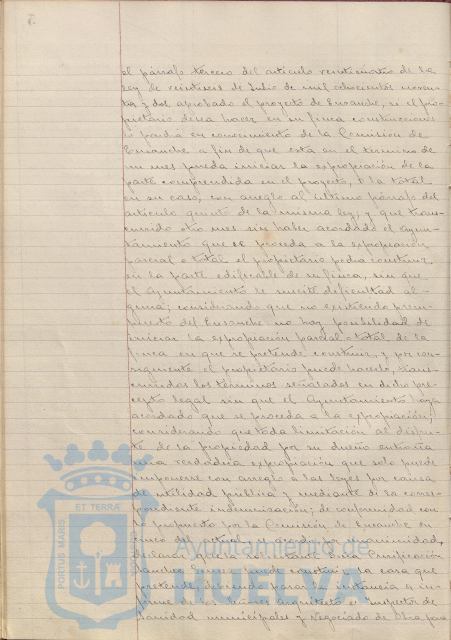 el párrafo tercero del artículo veinticuatro de la
ley de veintiseis de Julio de mil ochocientos noven-
ta y dos aprobado el proyecto de Ensanche, si el pro-
pietario desea hacer en su finca construcciones
lo pondrá en conocimiento de la Comisión de
Ensanche a fin de que esta en el termino de
un mes pueda iniciar la expropiación de la
parte comprendida en el proyecto, o la total
en su caso, con arreglo al último párrafo del
artículo quinto de la misma ley; y que trans-
currido otro mes sin haber acordado el ayun-
tamiento que se proceda a la expropiación
parcial o total el propietario podrá construir,
en la parte edificable de su finca, sin que
el Ayuntamiento le suscite dificultad al-
guna; considerando que no existiendo presu-
puesto del Ensanche no hay posibilidad de
iniciar la expropiación parcial o total de la
finca en que se pretende construir, y por con-
siguiente el propietario puede hacerlo, trans-
curridos los términos señalados en dicho pre-
cepto legal sin que el Ayuntamiento haya
acordado que se proceda a la expropiación;
considerando que toda limitación al disfru-
te de la propiedad por su dueño entraña
una verdadera expropiación que solo puede
imponerse con arreglo a las leyes por causa
de utilidad pública y mediante la corres-
pondiente indemnización; de conformidad con
lo propuesto por la Comisión de Ensanche en
cinco del actual, se acordó por unanimidad,
declarar que el solicitante
Sanchez puede construir la casa que
pretende, debiendo pasar la instancia a in-
forme de los Señores Arquitecto e Inspector de
Sanidad municipales y Negociado de Obras para
PORTUS MARIS
ET TERRÆ
Ayuntamiento de
HUELVA